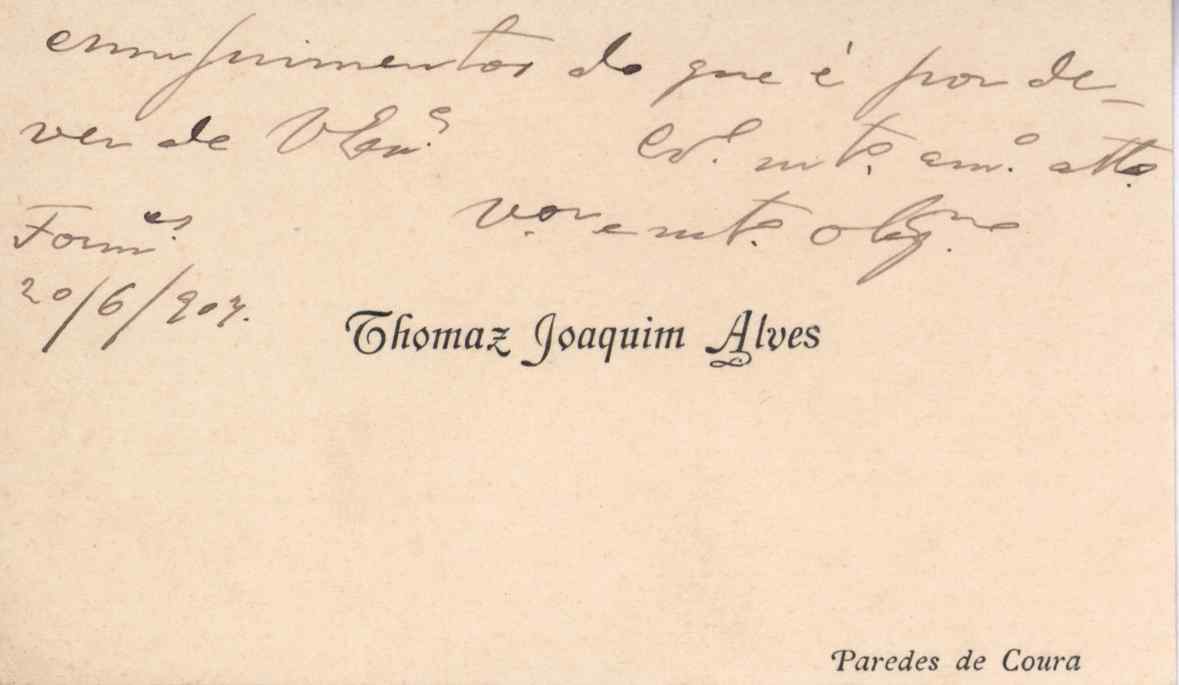 cumprimentos do que é por de-
ver de V Exª. Crº. mtº. amº. attº.
vºr e mtº. obgmo
Formes.
20/6/907.
Thomaz Joaquim Alves
Paredes de Coura